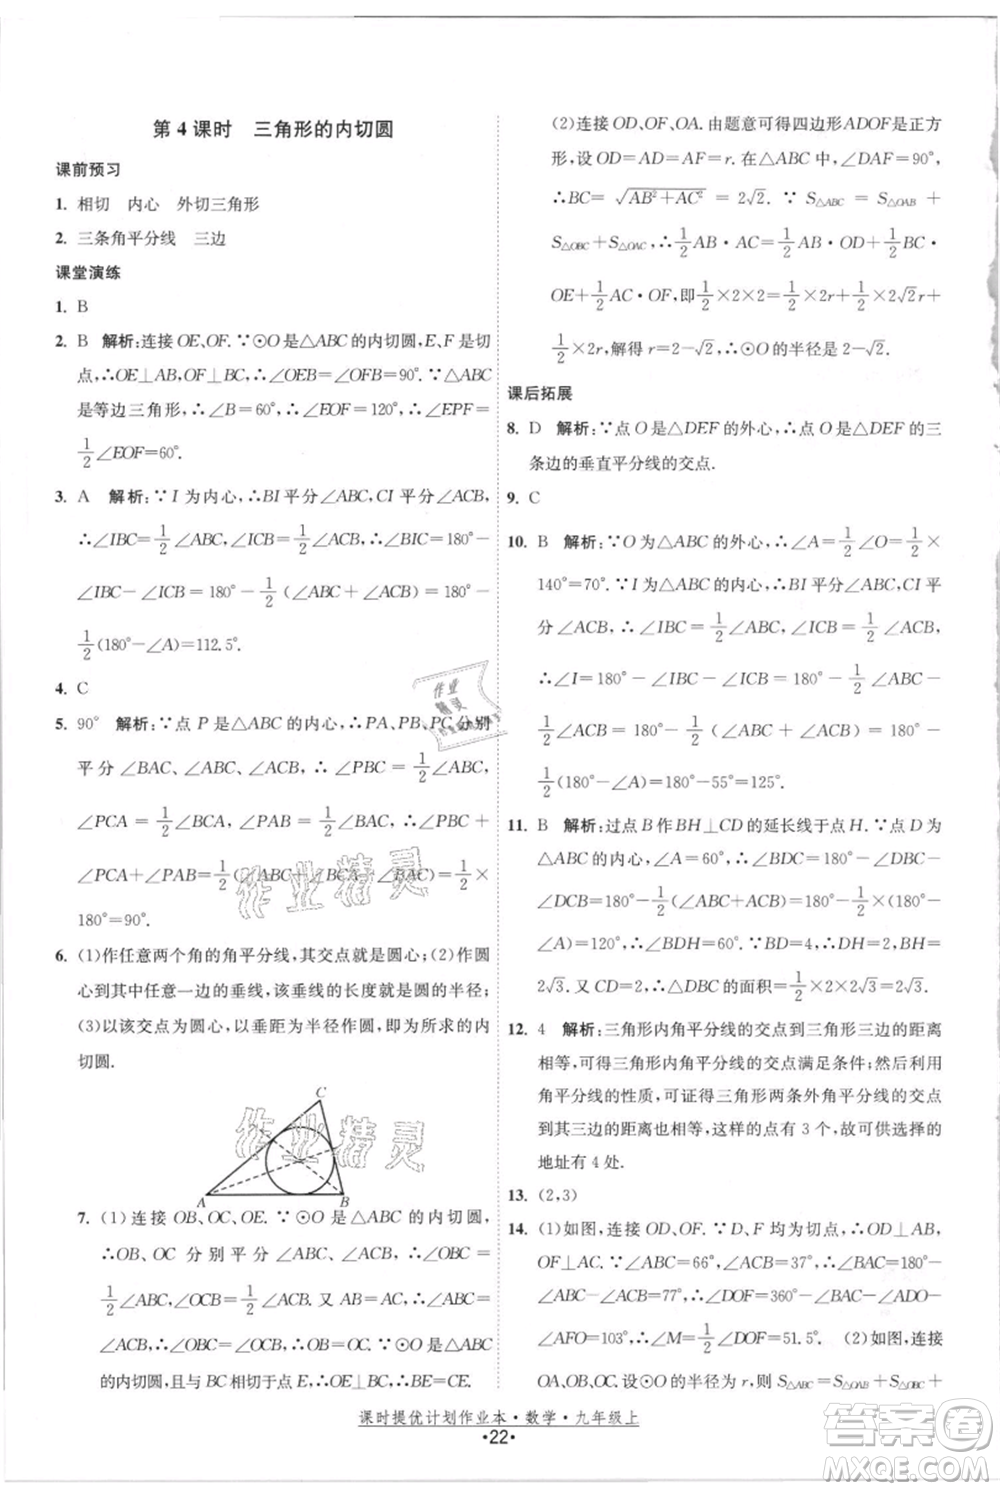 第 4 课时　三角形的内切圆
课前预习
1. 相切　内心　外切三角形
2. 三条角平分线　三边
课堂演练
1. B
2. B　解析:连接 OE,OF.∵⊙O 是△ABC 的内切圆,E,F 是切
点,∴OE⊥AB,OF⊥BC,∴∠OEB=∠OFB=90°.∵△ABC
是等边三角形,∴∠B=60°,∴∠EOF=120°,∴∠EPF=
1/2∠EOF=60°.
3. A　解析:∵I 为内心,∴BI 平分∠ABC,CI 平分∠ACB,
∴∠IBC=1/2∠ABC,∠ICB=1/2∠ACB,∴∠BIC=180°-
∠IBC-∠ICB=180°-1/2(∠ABC+∠ACB)=180°-
1/2(180°-∠A)=112.5°.
4. C
5. 90°　解析:∵点 P 是△ABC 的内心,∴PA、PB、PC 分别
平分∠BAC、∠ABC、∠ACB,∴∠PBC=1/2∠ABC,
∠PCA=1/2∠BCA,∠PAB=1/2∠BAC,∴∠PBC+
∠PCA+∠PAB=1/2(∠BAC+∠BCA+∠ABC)=1/2×
180°=90°.
6. (1)作任意两个角的角平分线,其交点就是圆心;(2)作圆
心到其中任意一边的垂线,该垂线的长度是该圆的半径;
(3)以该交点为圆心,以垂距为半径作圆,即为所求的内
切圆.
C
A
B
7. (1)连接 OB、OC、OE.∵⊙O 是△ABC 的内切圆,
∴OB、OC 分别平分∠ABC、∠ACB,∴∠OBC=
1/2∠ABC,∠OCB=1/2∠ACB.又 AB=AC,∴∠ABC=
∠ACB,∴∠OBC=∠OCB,∴OB=OC.∵⊙O 是△ABC
的内切圆,且与 BC 相切于点 E,∴OE⊥BC,∴BE=CE.
(2)连接 OD,OF,OA.由题意可得四边形 ADOF 是正方
形,设 OD=AD=AF=r.在△ABC 中,∠DAF=90°,
∴BC=√(AB²+AC²)=2√2.∵S△ABC=S△OAB+
S△OBC+S△OAC,∴1/2AB·AC=1/2AB·OD+1/2BC·
OE+1/2AC·OF,即1/2×2×2=1/2×2r+1/2×2√2r+
1/2×2r,解得 r=2-√2,∴⊙O 的半径是 2-√2.
课后拓展
8. D　解析:∵点 O 是△DEF 的外心,∴点 O 是△DEF 的三
条边的垂直平分线的交点.
9. C
10. B　解析:∵O 为△ABC 的外心,∴∠A=1/2∠O=1/2×
140°=70°.∵I 为△ABC 的内心,∴BI 平分∠ABC,CI 平
分∠ACB,∴∠IBC=1/2∠ABC,∠ICB=1/2∠ACB,
∴∠I=180°-∠IBC-∠ICB=180°-1/2∠ABC-
1/2∠ACB=180°-1/2(∠ABC+∠ACB)=180°-1/2
(180°-∠A)=180°-55°=125°.
11. B　解析:过点 B 作 BH⊥CD 的延长线于点 H.∵点 D 为
△ABC 的内心,∠A=60°,∴∠BDC=180°-1/2(180°-
∠A)=120°,∴∠BDH=60°.∵BD=4,∴DH=2,BH=
2√3.∵CD=2,∴△DBC 的面积=1/2CD·BH=1/2×2×
2√3=2√3.
12. 4　解析:三角形内角平分线的交点到三角形三边的距离
相等,可得三角形内角平分线的交点满足条件;然后利用
角平分线的性质,可证得三角形两条外角平分线的交点到
其三边的距离也相等,这样的点有 3 个,故可供选择的
地址有 4 处.
13. (2,3)
14. (1)如图,连接 OD、OF.∵D、F 均为切点,∴OD⊥AB,
OF⊥AC.∵∠ABC=66°,∠ACB=37°,∴∠BAC=
180°-∠ABC-∠ACB=77°,∴∠DOF=360°-∠BAC-∠ADO-
∠AFO=103°,∴∠M=1/2∠DOF=51.5°.　(2)如图,连接
OA、OB、OC,设⊙O 的半径是 r.∵S△ABC=S△AOC+
课时提优计划作业本·数学·九年级上
·22·
作业精灵
作业精灵
作业
精灵
答案圈
MXQE.COM